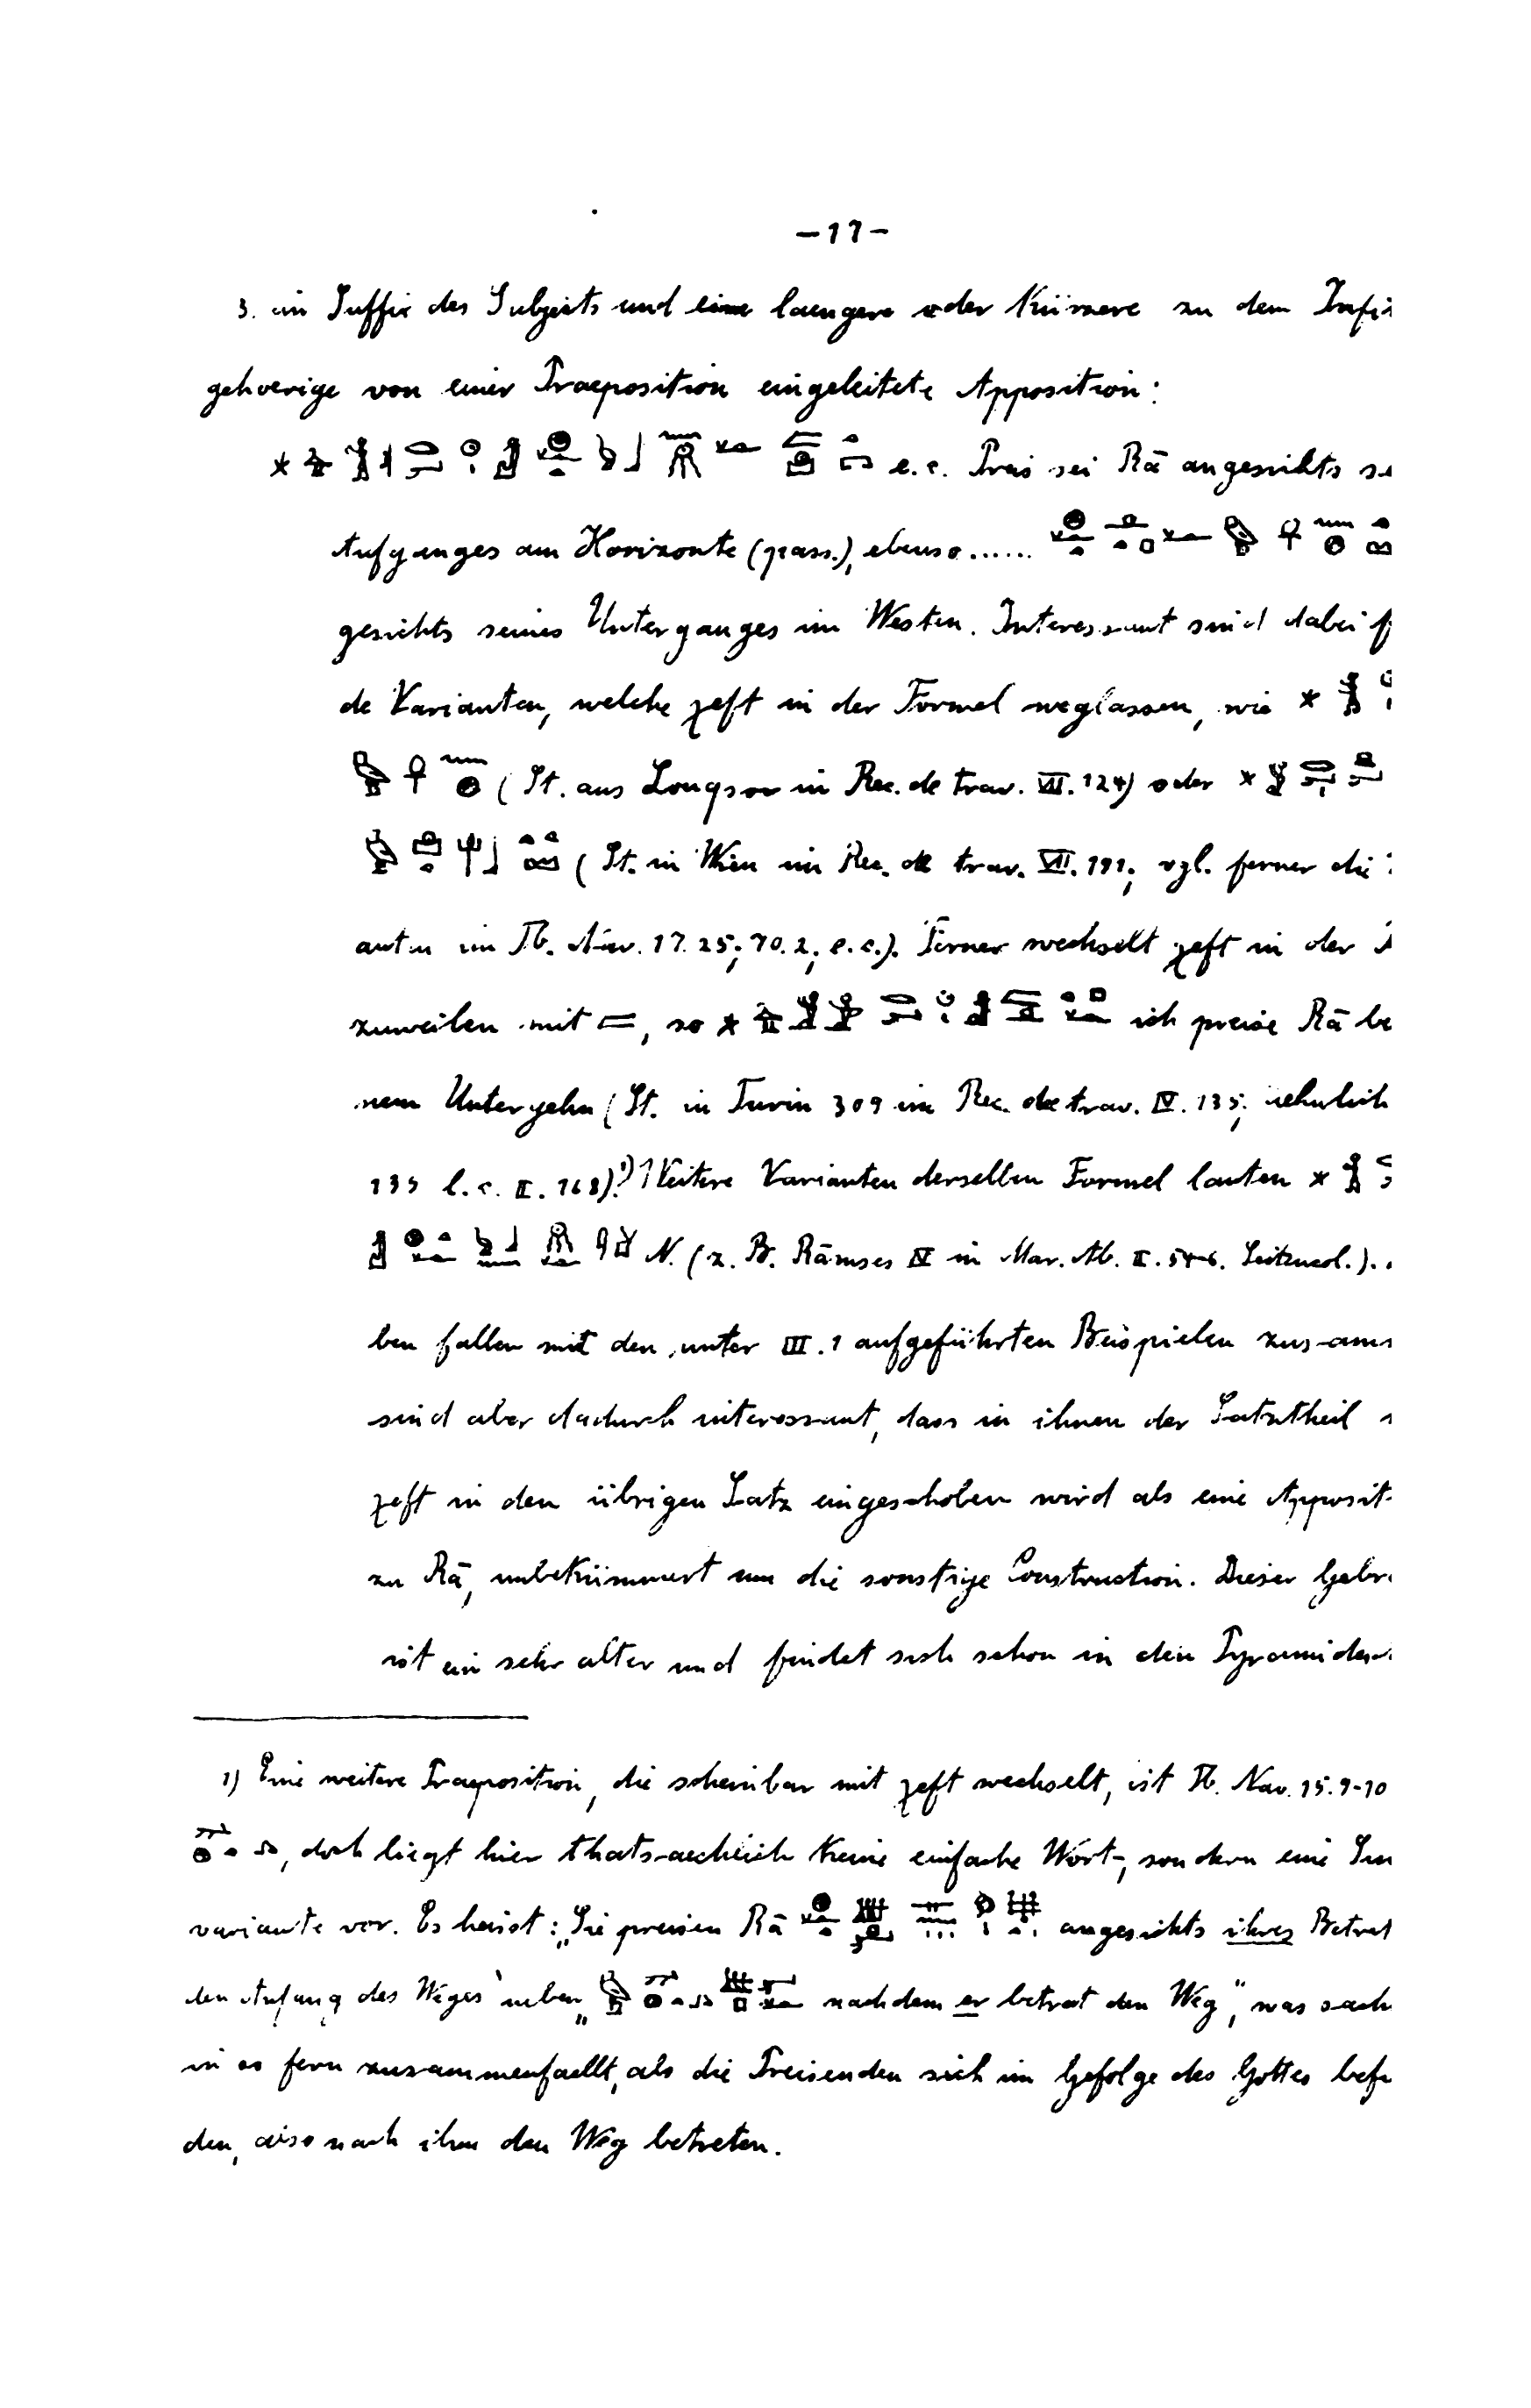 -17-
3. ein Suffix des Subjects und eine laengere oder Kürzere zu dem Infi
gehoerige von einer Praeposition eingeleitete Apposition:
e.c. Preis sei Rā angesichts se
Aufganges am Horizonte (pass.), ebenso......
gesichts seines Unterganges im Westen. Interessant sind dabei f
de Varianten, welche χeft in der Formel weglassen, wie
(St. aus Louqsor in Rec. de trav. VII. 124) oder
(St. in Wien im Rec. de trav. VII. 191; vgl. ferner die
anten im Tb. Nav. 17. 25; 70. 2; e.c.). Ferner wechselt χeft in der
zuweilen mit, so ich preise Rā be
nem Untergehn (St. in Turin 309 im Rec. de trav. IV. 135; aehnlich
135 l. c. II. 168).¹) Weitere Varianten derselben Formel lauten
N. (z. B. Rāmses IV in Mar. Ab. II. 54-6. Seitencol.).
ben fallen mit den unter III. 1 aufgeführten Beispielen zusam
sind aber dadurch interessant, dass in ihnen der Satztheil
χeft in den übrigen Satz eingeschoben wird als eine Apposit
zu Rā, unbeKümmert um die sonstige Construction. Dieser Gebr
ist ein sehr alter und findet sich schon in den Pyramiden
1) Eine weitere Praeposition, die scheinbar mit χeft wechselt, ist Tb. Nav. 15. 9-10
, doch liegt hier thatsaechlich Keine einfache Wort-, sondern eine Sin
variante vor. Es heisst: „Sie preisen Rā angesichts ihres Betret
den Anfang des Weges" neben „ nachdem er betrat den Weg", was sach
in so fern zusammenfaellt, als die Preisenden sich im Gefolge des Gottes befi
den, also nach ihm den Weg betreten.